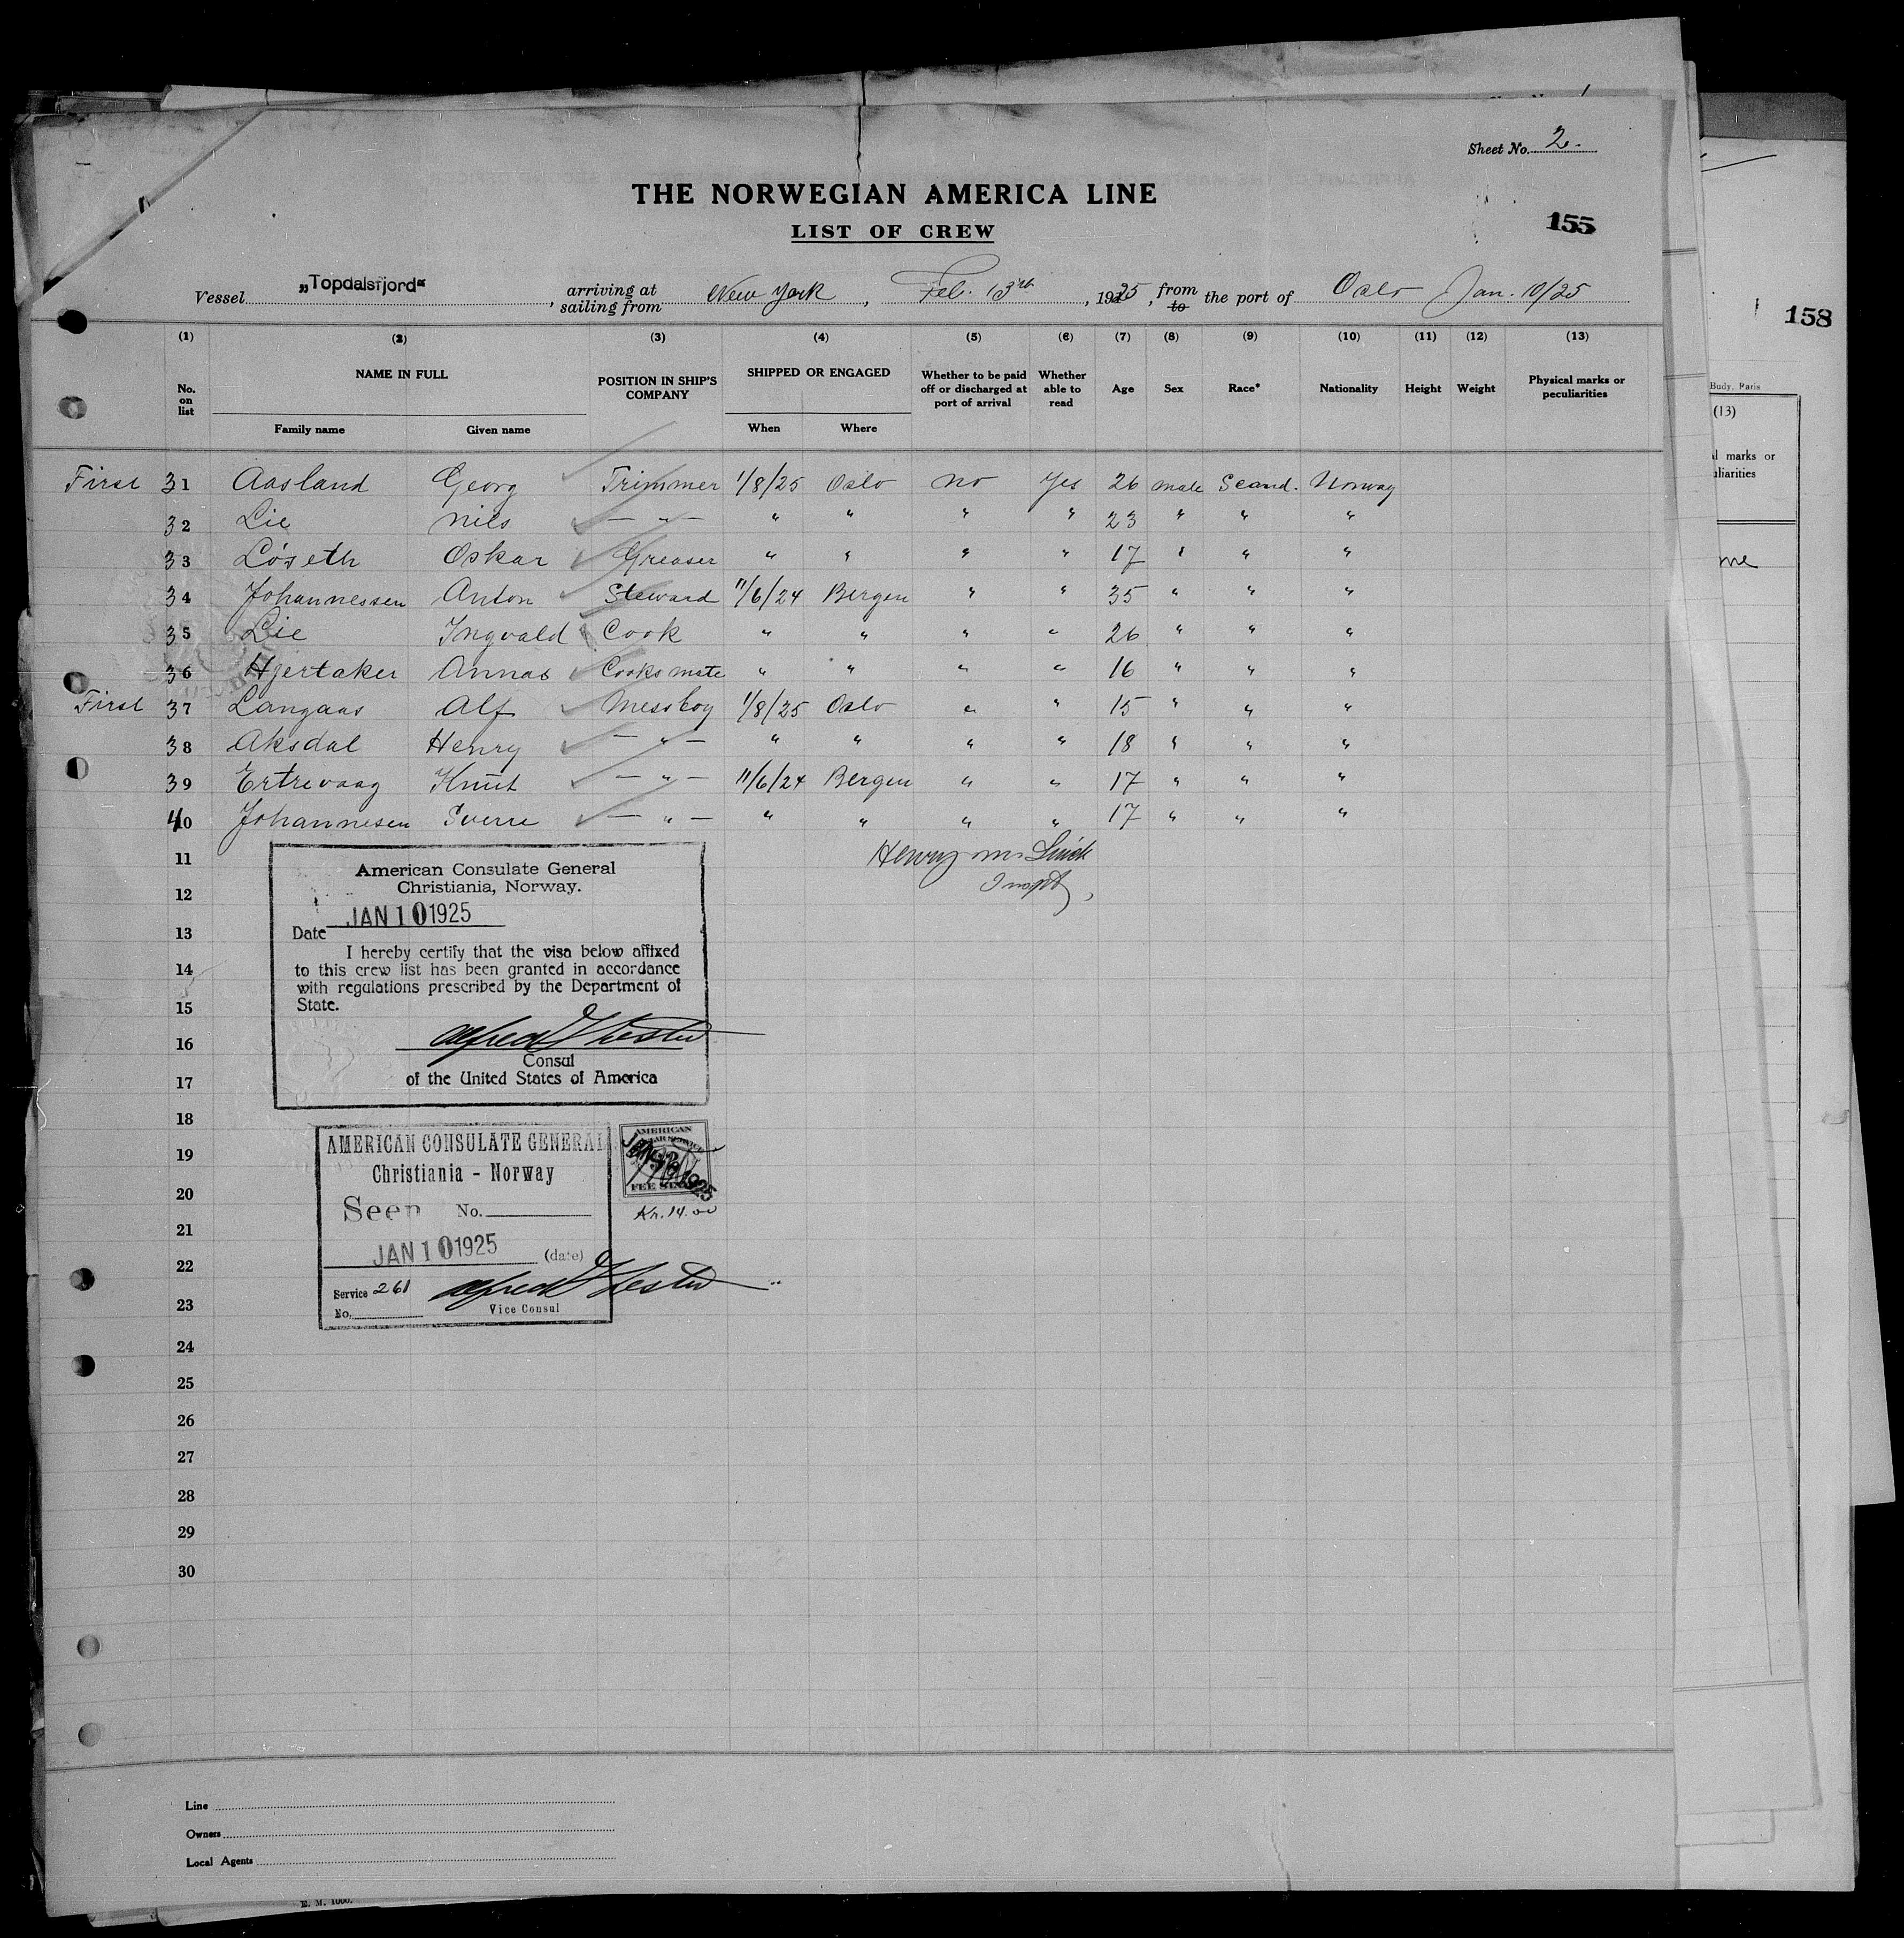 Sheet No. 2.
THE NORWEGIAN AMERICA LINE
155
LIST OF CREW
Vessel „Topdalsfjord“, arriving at sailing from New York, Feb. 13th, 1925, from to the port of Oslo Jan. 10/25
158
(1) (2) (3) (4) (5) (6) (7) (8) (9) (10) (11) (12) (13)
No. on list NAME IN FULL POSITION IN SHIP'S COMPANY SHIPPED OR ENGAGED Whether to be paid off or discharged at port of arrival Whether able to read Age Sex Race* Nationality Height Weight Physical marks or peculiarities
Family name Given name When Where
Budy, Paris
(13)
marks or
uliarities
me
First 31 Aasland Georg Trimmer 1/8/25 Oslo no Yes 26 male Scand. Norway
32 Lie Nils — " — " " " " 23 " " "
33 Löseth Oskar Greaser " " " " 17 " " "
34 Johannessen Anton Steward 11/6/24 Bergen " " 35 " " "
35 Lie Ingvald Cook " " " " 26 " " "
36 Hjertaker Annas Cooks mate " " " " 16 " " "
First 37 Langaas Alf Messboy 1/8/25 Oslo " " 15 " " "
38 Aksdal Henry — " — " " " " 18 " " "
39 Ertrevaag Knut — " — 11/6/24 Bergen " " 17 " " "
40 Johannesen Sverre — " — " " " " 17 " " "
11 Henry M.
12
13
14
15
16
17
18
19
20
21
22
23
24
25
26
27
28
29
30
American Consulate General
Christiania, Norway.
Date JAN 10 1925
I hereby certify that the visa below affixed
to this crew list has been granted in accordance
with regulations prescribed by the Department of
State.
Alfred
Consul
of the United States of America
AMERICAN CONSULATE GENERAL
Christiania - Norway
Seen No.
JAN 10 1925 (date)
Service 261 Alfred
No. Vice Consul
AMERICAN
FEE
1925
Kr. 14.00
Line
Owners
Local Agents
E. M. 1000.